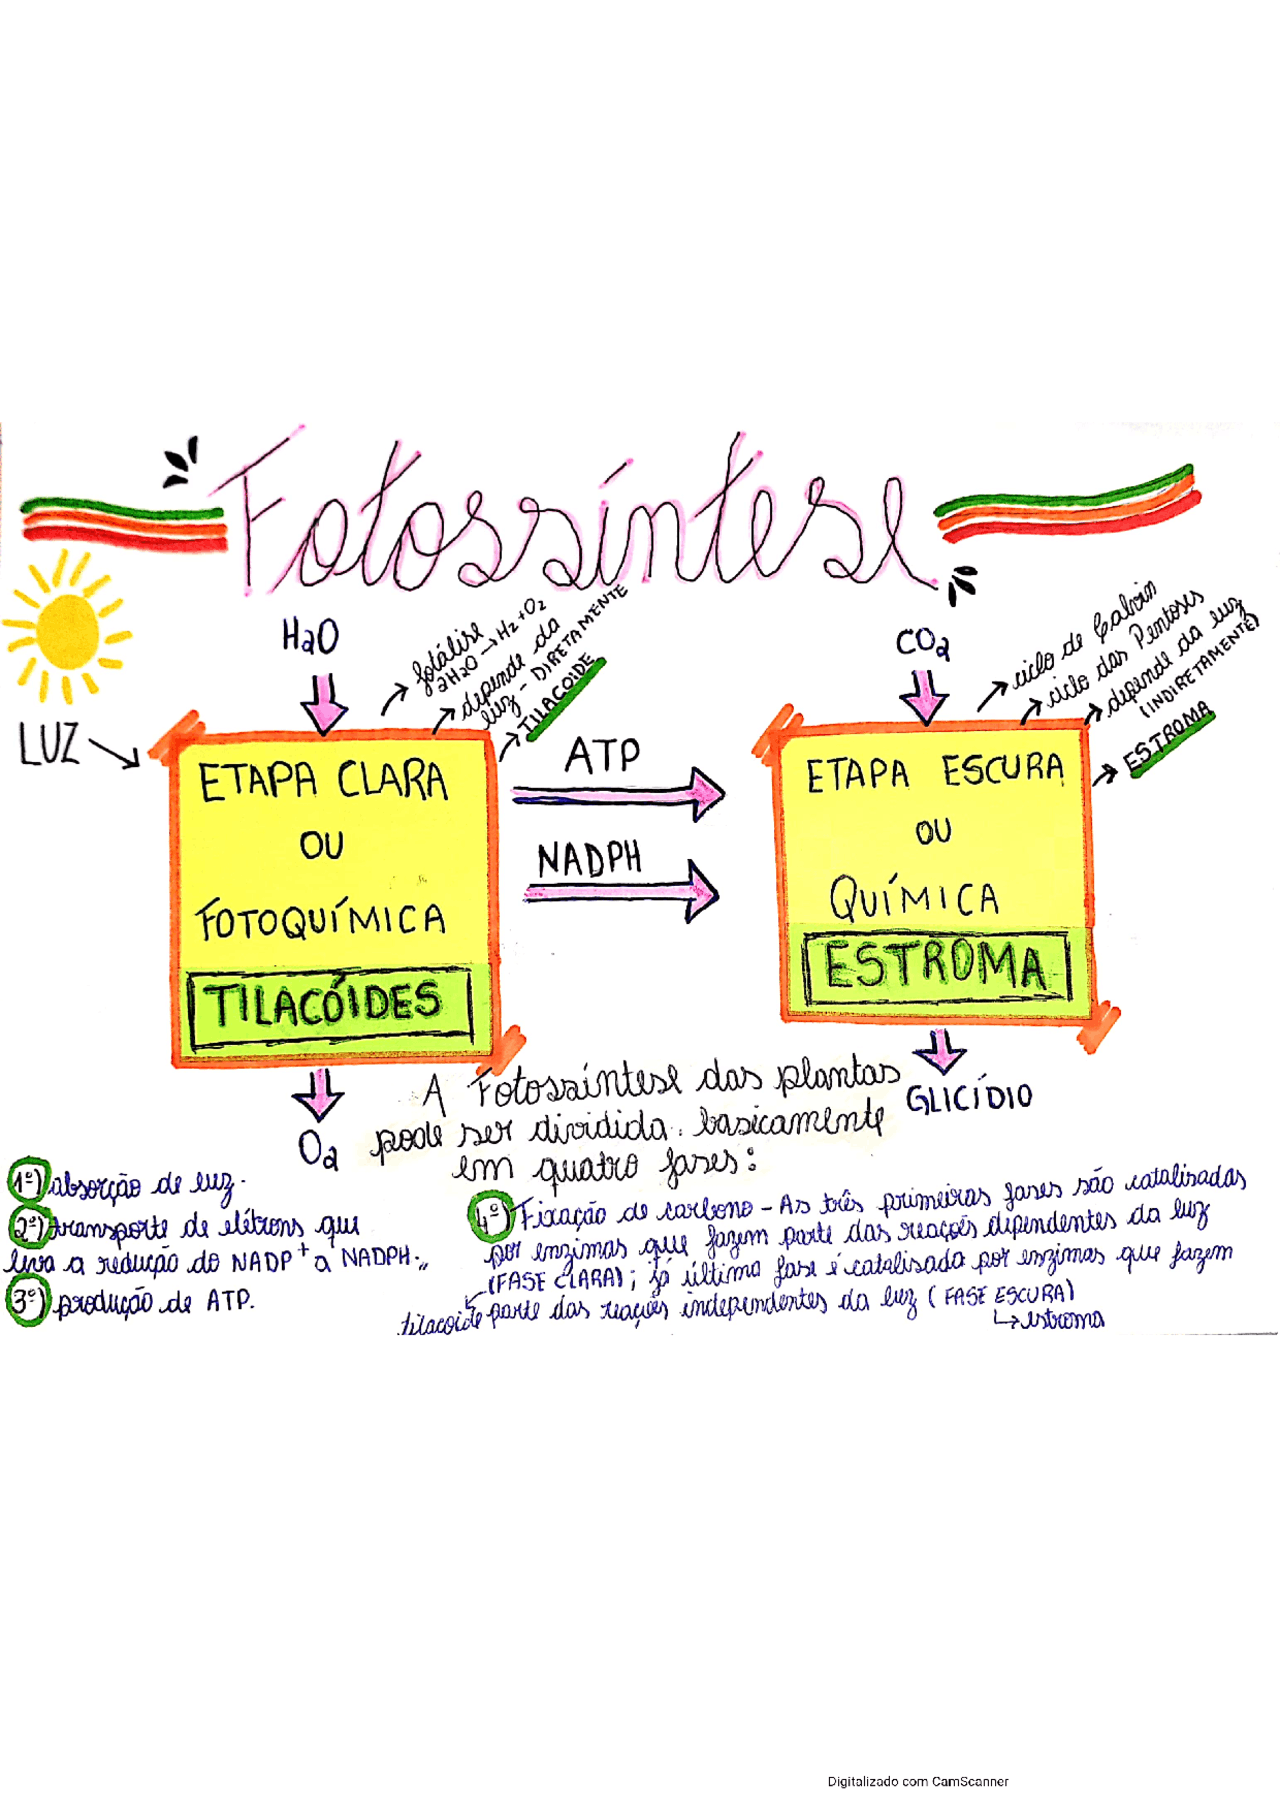 Fotossíntese
H2O
→ fotólise
2H2O → H2 + O2
→ depende da
luz - DIRETAMENTE
→ TILACOIDE
CO2
→ ciclo de Calvin
→ ciclo das Pentoses
→ depende da luz
(INDIRETAMENTE)
→ ESTROMA
LUZ
ETAPA CLARA
OU
FOTOQUÍMICA
TILACÓIDES
ATP
NADPH
ETAPA ESCURA
OU
QUÍMICA
ESTROMA
O2
GLICÍDIO
A Fotossíntese das plantas
pode ser dividida basicamente
em quatro fases:
1º) absorção de luz.
2º) transporte de elétrons que
leva a redução do NADP+ a NADPH.
3º) produção de ATP.
4º) Fixação de carbono - As três primeiras fases são catalisadas
por enzimas que fazem parte das reações dependentes da luz
(FASE CLARA); já última fase é catalisada por enzimas que fazem
tilacoide parte das reações independentes da luz (FASE ESCURA)
↳ estroma
Digitalizado com CamScanner